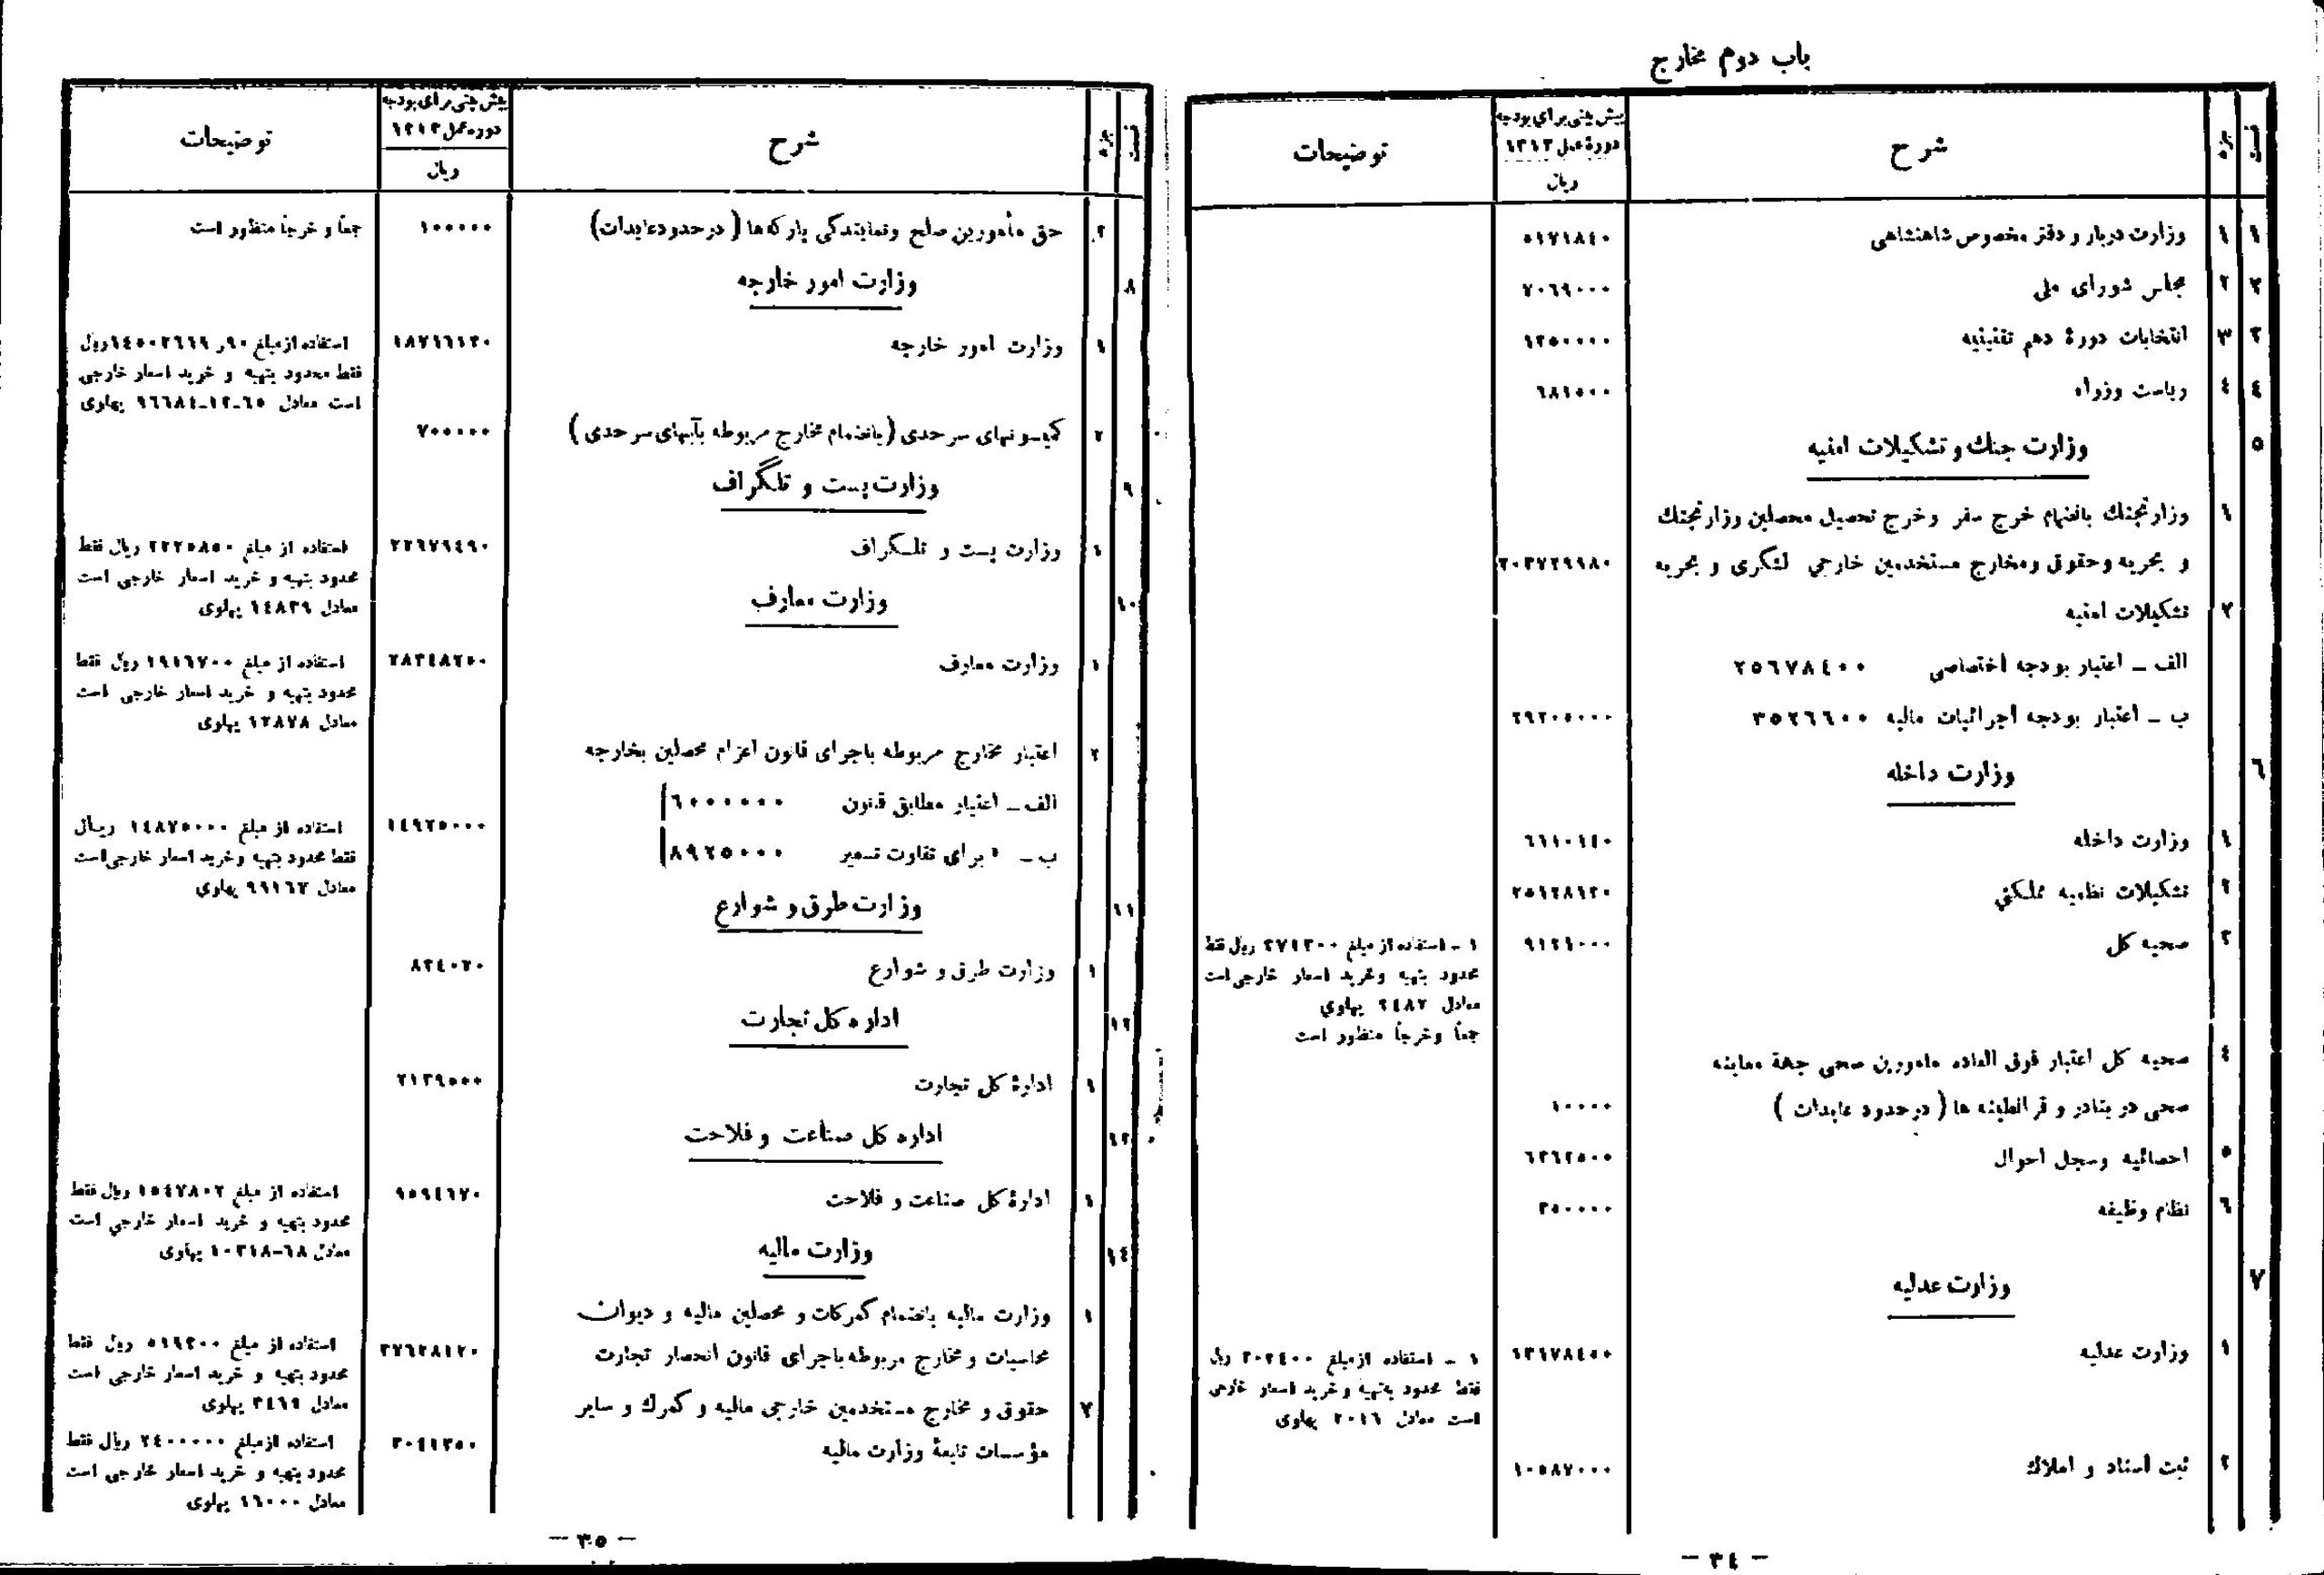 باب دوم مخارج
قسمت جزء شرح پیش بینی برای بودجه دورهٔ عمل ۱۳۱۳ ریال توضیحات
۱ ۱ وزارت دربار و دفتر مخصوص شاهنشاهی
۲ ۲ مجلس شورای ملی ۷۰٦۹۰۰۰
۳ ۳ انتخابات دورهٔ دهم تقنینیه
٤ ٤ ریاست وزراء
۵ وزارت جنك و تشکیلات امنیه
۱ وزارتجنك بانضمام خرج سفر و خرج تحصیل محصلین وزارتجنك
و بحریه و حقوق ومخارج مستخدمین خارجی لشکری و بحریه
۲ تشکیلات امنیه
الف ـ اعتبار بودجه اختصاصی ۲۵٦۷۸٤۰۰
ب ـ اعتبار بودجه اجرائیات مالیه ۳۵۲٦٦۰۰ ۲۹۲۰۵۰۰۰
٦ وزارت داخله
۱ وزارت داخله
۲ تشکیلات نظمیه مملکتی
۳ صحیه کل
۱ ـ استفاده از مبلغ ریال فقط
محدود بتهیه وخرید اسعار خارجی است
معادل پهلوی
جمعاً وخرجاً منظور است
٤ صحیه کل اعتبار فوق العاده مامورین صحی جهة معاینه
صحی در بنادر و قرانطینه ها ( در حدود عایدات ) ۱۰۰۰۰
۵ احصائیه وسجل احوال
٦ نظام وظیفه
۷ وزارت عدلیه
۱ وزارت عدلیه
۱ ـ استفاده ازمبلغ ریال
فقط محدود بتهیه وخرید اسعار خارجی
است معادل ۲۰۱٦ پهلوی
۲ ثبت اسناد و املاك ۱۰۵۸۷۰۰۰
ـ ۳٤ ـ
قسمت جزء شرح پیش بینی برای بودجه دوره عمل ۱۳۱۳ ریال توضیحات
حق مأمورین صلح ونمایندگی پارکه‌ها ( در حدود عایدات) ۱۰۰۰۰۰ جمعاً و خرجاً منظور است
۸ وزارت امور خارجه
۱ وزارت امور خارجه
استفاده ازمبلغ ریال
فقط محدود بتهیه و خرید اسعار خارجی
است معادل پهلوی
۲ کمیسونهای سرحدی ( بانضمام مخارج مربوطه بآبهای سرحدی ) ۷۰۰۰۰۰
۹ وزارت پست و تلگراف
۱ وزارت پست و تلگراف
استفاده از مبلغ ریال فقط
محدود بتهیه و خرید اسعار خارجی است
معادل ۱٤۸۳۹ پهلوی
۱۰ وزارت معارف
۱ وزارت معارف
استفاده از مبلغ ۱۹۱٦۷۰۰ ریال فقط
محدود بتهیه و خرید اسعار خارجی است
معادل ۱۲۸۷۸ پهلوی
۲ اعتبار مخارج مربوطه باجرای قانون اعزام محصلین بخارجه
الف ـ اعتبار مطابق قانون ٦۰۰۰۰۰۰
ب ـ » برای تفاوت تسعیر ۸۹۲۵۰۰۰
۱٤۹۲۵۰۰۰
استفاده از مبلغ ۱٤۸۷۵۰۰۰ ریال
فقط محدود بتهیه وخرید اسعار خارجی است
معادل پهلوی
۱۱ وزارت طرق و شوارع
۱ وزارت طرق و شوارع
۱۲ اداره کل تجارت
۱ ادارهٔ کل تجارت
۱۳ اداره کل صناعت و فلاحت
۱ ادارهٔ کل صناعت و فلاحت
استفاده از مبلغ ریال فقط
محدود بتهیه و خرید اسعار خارجی است
معادل پهلوی
۱٤ وزارت مالیه
۱ وزارت مالیه بانضمام گمرکات و محصلین مالیه و دیوان
محاسبات و مخارج مربوطه باجرای قانون انحصار تجارت
استفاده از مبلغ ریال فقط
محدود بتهیه و خرید اسعار خارجی است
معادل پهلوی
۲ حقوق و مخارج مستخدمین خارجی مالیه و گمرك و سایر
مؤسسات تابعهٔ وزارت مالیه
استفاده ازمبلغ ۲٤۰۰۰۰۰ ریال فقط
محدود بتهیه و خرید اسعار خارجی است
معادل ۱٦۰۰۰ پهلوی
ـ ۳۵ ـ